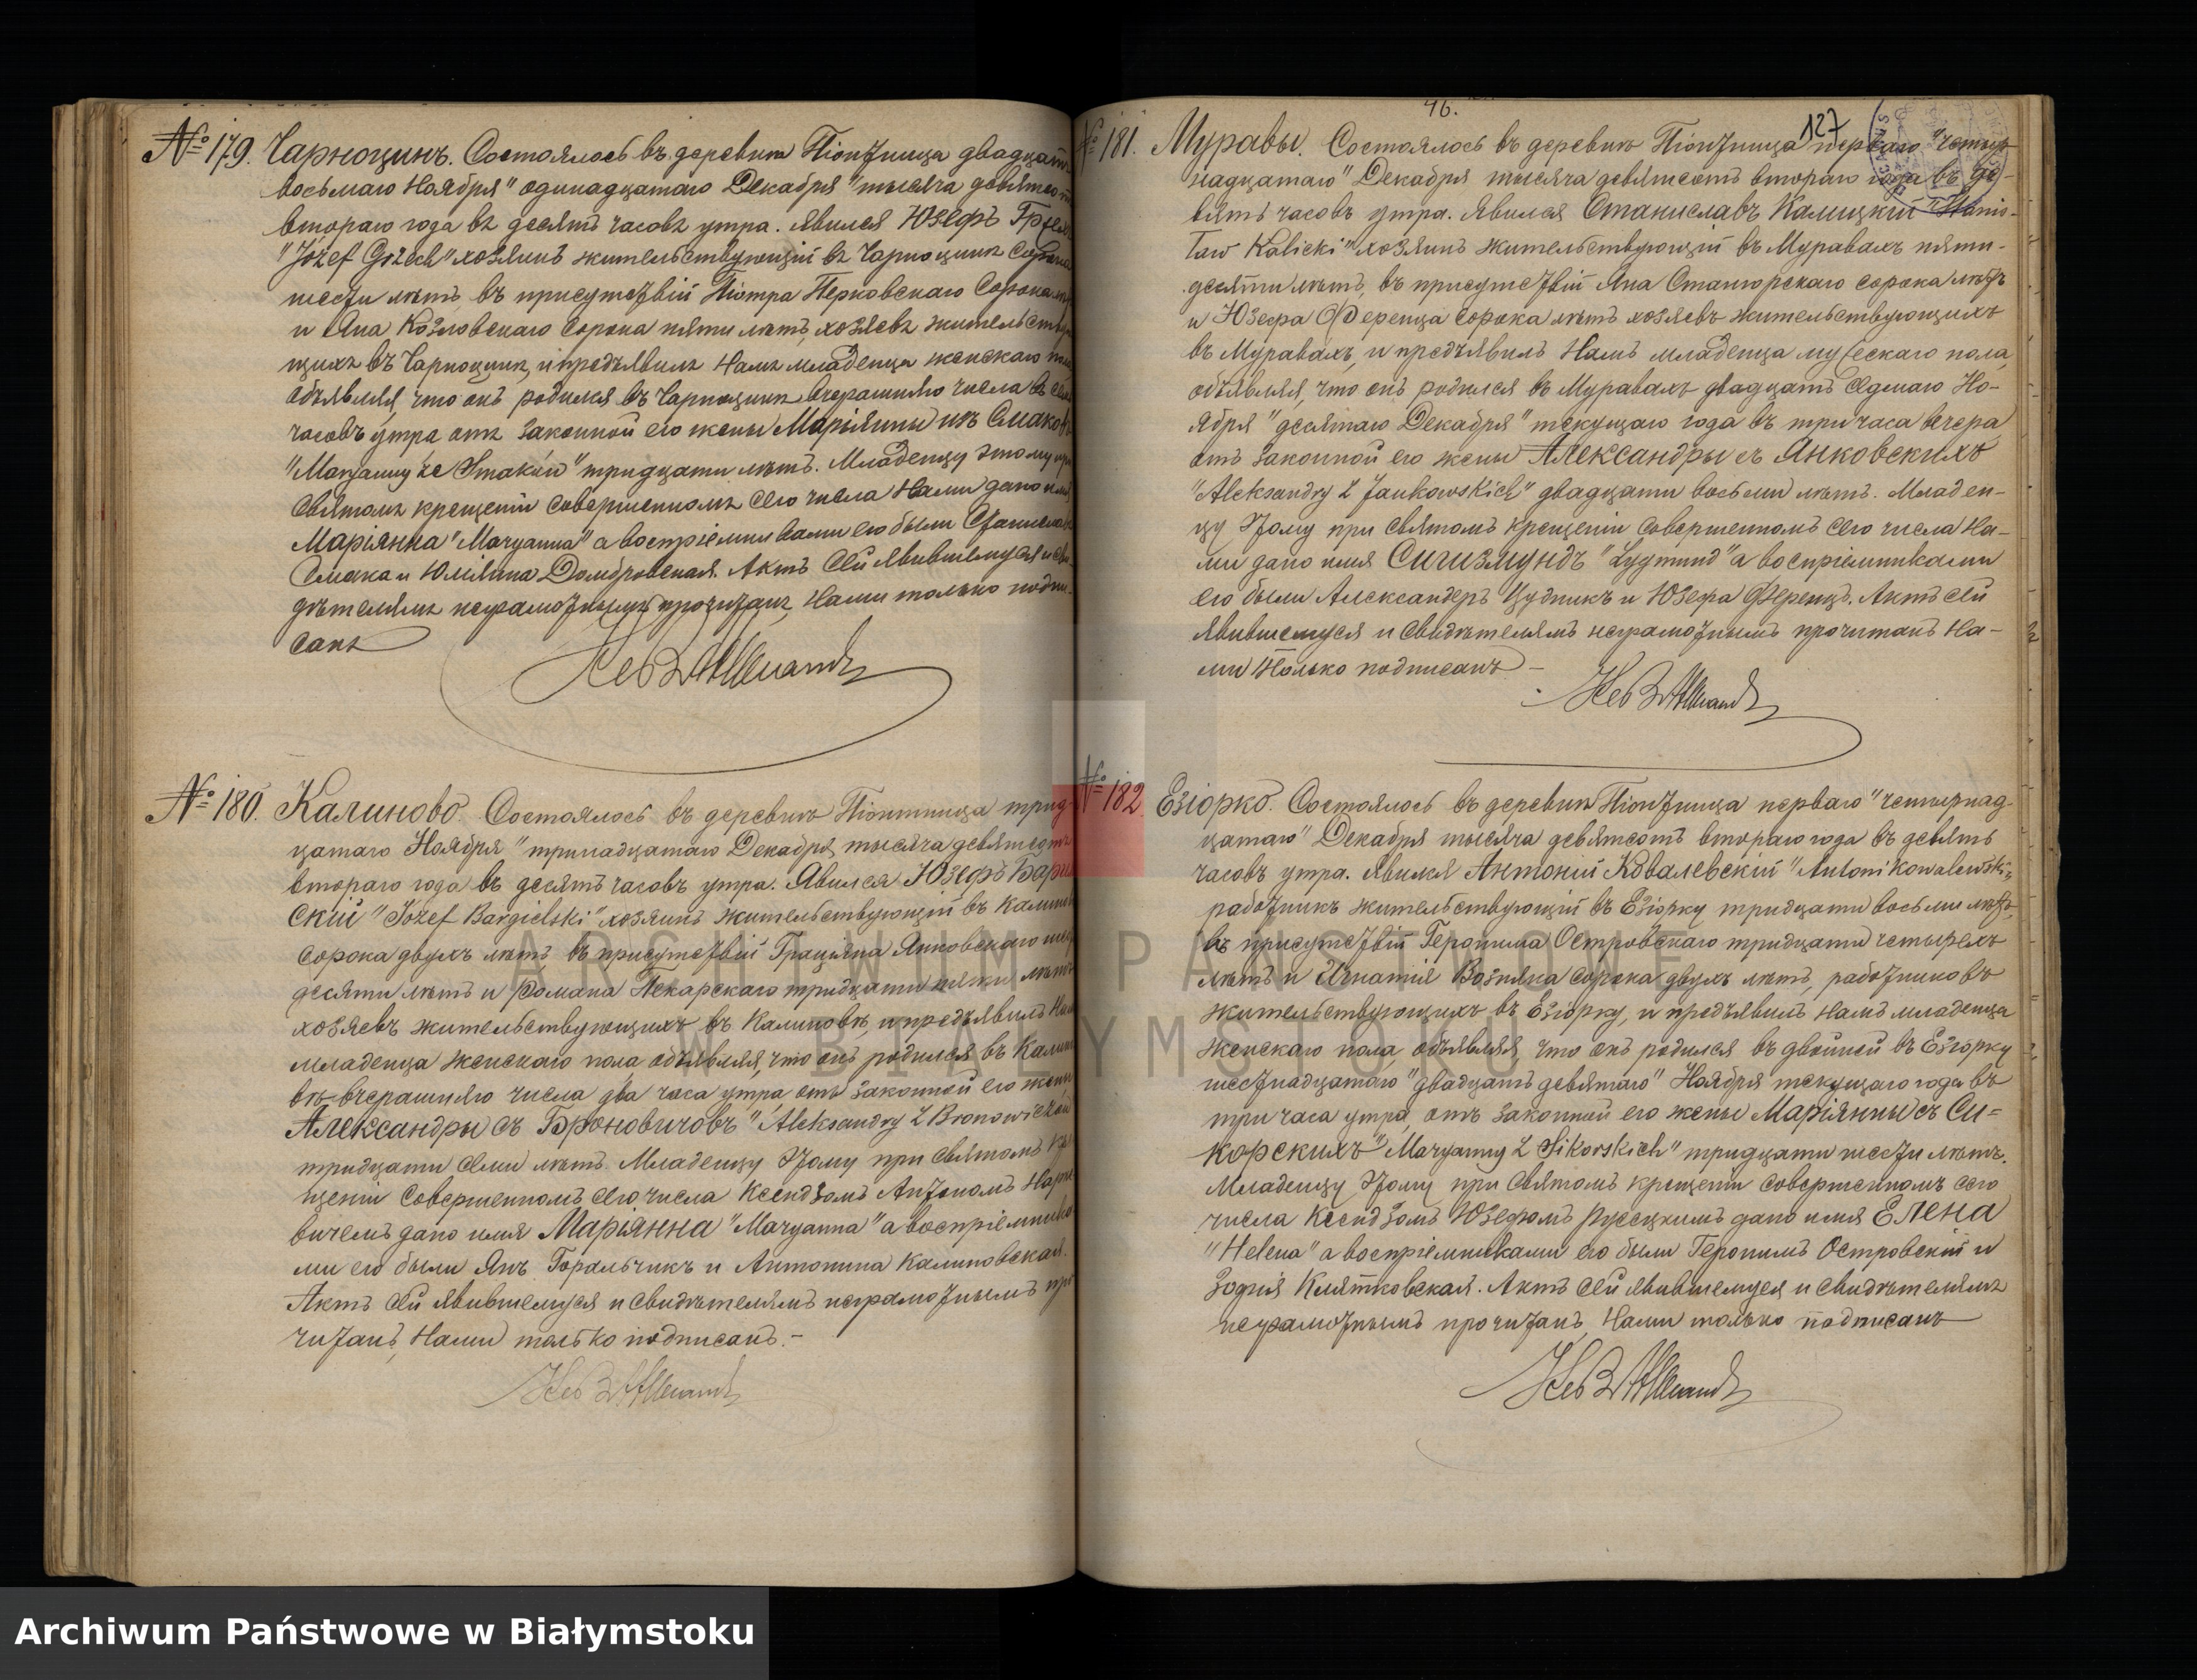 № 179. Чарноцинъ. Состоялось въ деревнѣ Піонтница двадцать
восьмаго Ноября "одинадцатаго Декабря" тысяча девятсотъ
втораго года въ десять часовъ утра. Явился Юзефъ Гржех
"Józef Grzech" хозяинъ жительствующій въ Чарноцинѣ сорока
шести лѣтъ, въ присутствіи Піотра Перковскаго сорока
и Яна Козловскаго сорока пяти лѣтъ, хозяевъ жительству
щихъ въ Чарноцинѣ, и предъявилъ Намъ младенца женскаго
объявляя, что онъ родился въ Чарноцинѣ вчерашняго числа въ
часовъ утра отъ законной его жены Маріянны изъ Смаковъ
"Maryanny ze Smaków" тридцати лѣтъ. Младенцу этому при
Святомъ крещеніи совершенномъ сего числа Нами дано имя
Маріянна "Maryanna" а воспріемниками его были Станиславъ
Смака и Юліянна Домбровская. Актъ сей явившемуся и сви-
дѣтелямъ неграмотнымъ прочитанъ, Нами только подпи-
санъ
№ 180. Калиново. Состоялось въ деревнѣ Піонтница трид
цатаго Ноября "тринадцатаго Декабря" тысяча девятсотъ
втораго года въ десять часовъ утра. Явился Юзефъ Барг
скій "Józef Bargielski" хозяинъ жительствующій въ Калино
сорока двухъ лѣтъ, въ присутствіи Граціяна Янковскаго шес
десяти лѣтъ и Романа Пекарскаго тридцати пяти лѣтъ
хозяевъ жительствующихъ въ Калиновѣ, и предъявилъ Намъ
младенца женскаго пола, объявляя, что онъ родился въ Калино
вѣ вчерашняго числа два часа утра отъ законной его жены
Александры съ Броновичовъ "Aleksandry z Bronowiczów
тридцати семи лѣтъ. Младенцу этому при Святомъ Кре
щеніи совершенномъ сего числа Ксендзомъ Антономъ
вичемъ дано имя Маріянна "Maryanna" а воспріемника
ми его были Янъ Горальчикъ и Антонина Калиновская.
Актъ сей явившемуся и свидѣтелямъ неграмотнымъ про
читанъ, Нами только подписанъ.-
46.
127
№ 181. Муравы. Состоялось въ деревнѣ Піонтница перваго "четыр
надцатаго" Декабря тысяча девятсотъ втораго года въ де-
вять часовъ утра. Явился Станиславъ Калицкій "Stanis-
ław Kalicki" хозяинъ жительствующій въ Муравахъ пяти-
десяти лѣтъ, въ присутствіи Яна Станюрскаго сорока лѣтъ
и Юзефа Ференца сорока лѣтъ хозяевъ жительствующихъ
въ Муравахъ, и предъявилъ Намъ младенца мужескаго пола,
объявляя, что онъ родился въ Муравахъ двадцать седмаго Но-
ября "десятаго Декабря" текущаго года въ три часа вечера
отъ законной его жены Александры съ Янковскихъ
"Aleksandry z Jankowskich" двадцати восьми лѣтъ. Младен-
цу этому при святомъ крещеніи совершенномъ сего числа На-
ми дано имя Сигизмундъ "Zygmund" а воспріемниками
его были Александеръ Цудникъ и Юзефа Ференцъ. Актъ сей
явившемуся и свидѣтелямъ неграмотнымъ прочитанъ На-
ми только подписанъ -
№ 182. Езіорко. Состоялось въ деревнѣ Піонтница перваго "четырнад-
цатаго" Декабря тысяча девятсотъ втораго года въ девять
часовъ утра. Явился Антоній Ковалевскій "Antoni Kowalewski",
работникъ жительствующій въ Езіорку тридцати восьми лѣтъ,
въ присутствіи Геронима Островскаго тридцати четырехъ
лѣтъ и Игнатія Возняка сорока двухъ лѣтъ, работниковъ
жительствующихъ въ Езіорку, и предъявилъ Намъ младенца
женскаго пола, объявляя, что онъ родился въ двойней въ Езіорку
шестнадцатаго "двадцать девятаго" Ноября текущаго года въ
три часа утра, отъ законной его жены Маріянны съ Си=
корскихъ "Maryanny z Sikorskich" тридцати шести лѣтъ.
Младенцу этому при святомъ крещеніи совершенномъ сего
числа Ксендзомъ Юзефомъ Русецкимъ дано имя Елена
"Helena" а воспріемниками его были Геронимъ Островскій и
Зофія Квятковская. Актъ сей явившемуся и свидѣтелямъ
неграмотнымъ прочитанъ, Нами только подписанъ
ARCHIWUM PAŃSTWOWE
W BIAŁYMSTOKU
Archiwum Państwowe w Białymstoku